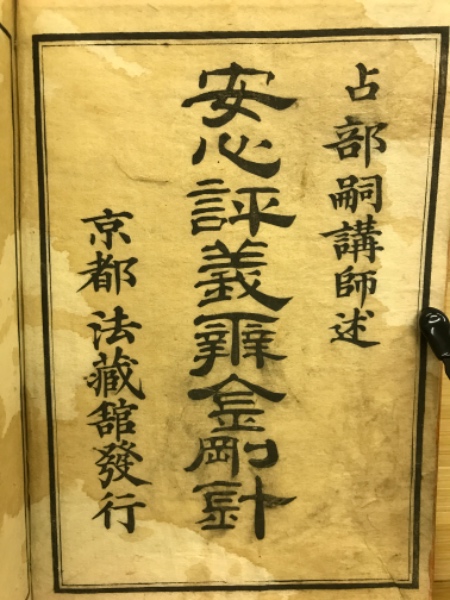 占部嗣講師述
安心評義金剛計
京都法藏舘發行